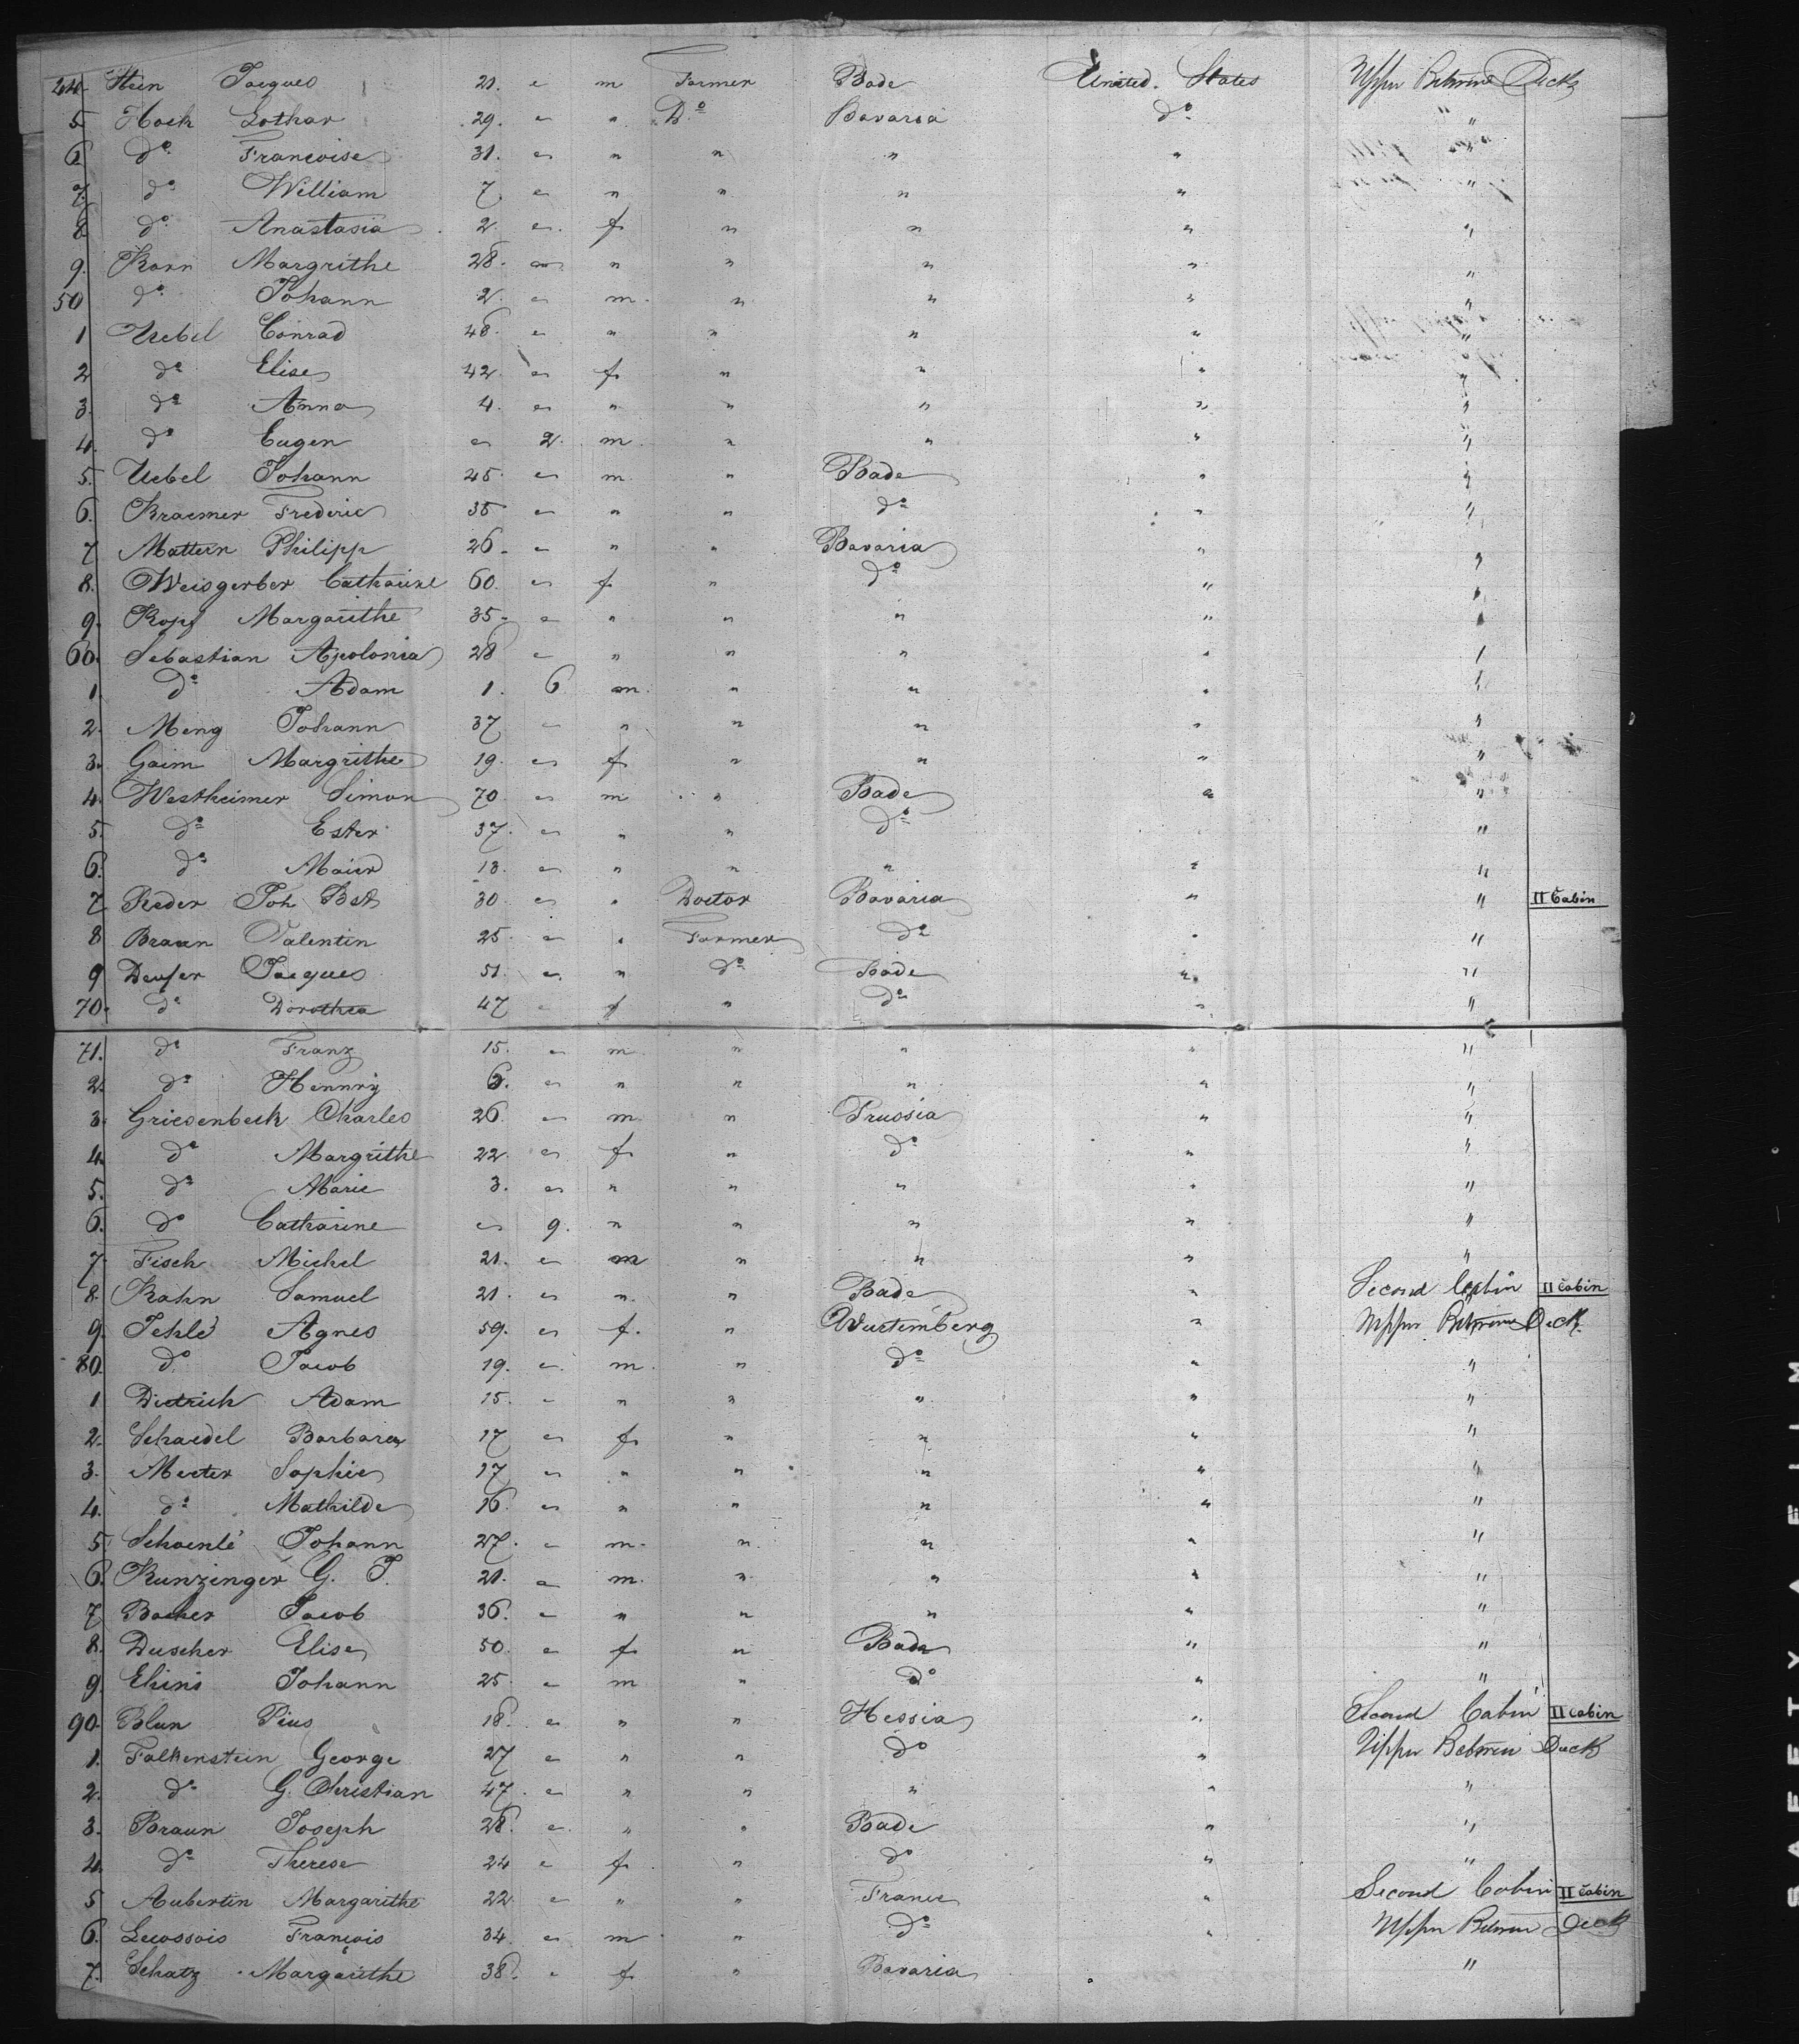 44 Hein Jacques 21. " m Farmer Bade United States Upper Between Decks
5 Hock Lothar 29. " " Do Bavaria do "
6 do Françoise 31. " " " " " "
7. do William 7 " " " " " "
8 do Anastasia 2. " f " " " "
9. Korn Margrithe 28. " " " " " "
50 do Johann 2. " m. " " " "
1 Uebel Conrad 48. " " " " " "
2 do Elise 42. " f. " " " "
3. do Anna 4. " " " " " "
4. do Eugen " 2. m. " " " "
5. Uebel Johann 45. " m. " Bade " "
6. Kraemer Frederic 35 " " " do " "
7 Mattern Philipp 26. " " " Bavaria " "
8. Weisgerber Catharine 60. " f. " do " "
9. Kopf Margarithe 35. " " " " " "
60. Sebastian Apolonia 28 " " " " " "
1. do Adam 1. 6 m. " " " "
2. Meng Johann 37 " " " " " "
3. Gaim Margrithe 19. " f. " " " "
4. Westheimer Simon 70. " m " Bade " "
5. do Ester 37. " " " do " "
6. do Maier 13. " " " " " "
7 Reder Joh Bst 30. " " Doctor Bavaria " " II Cabin
8 Braun Valentin 25. " " Farmer do " "
9 Deufer Jacques 51. " " do Bade " "
70. do Dorothea 47 " f " do " "
71. do Franz 15. " m. " " " "
2. do Hennry 6. " " " " " "
3. Griesenbeck Charles 26 " m. " Prussia " "
4. do Margrithe 22. " f. " do " "
5. do Marie 3. " " " " " "
6. do Catharine " 9. " " " " "
7. Fisch Michel 21. " m " " " "
8. Kahn Samuel 21. " " " Bade " Second Cabin II Cabin
9. Jehlé Agnes 59. " f. " Wurtemberg " Upper Between Deck
80. do Jacob 19. " m. " do " "
1 Dietrich Adam 15. " " " " " "
2. Schaedel Barbara 17 " f. " " " "
3. Mester Sophie 17 " " " " " "
4. do Mathilde 16. " " " " " "
5 Schoenlé Johann 27. " m. " " " "
6. Kunzinger G. J. 21. " m. " " " "
7 Bacher Jacob 36. " " " " " "
8. Duscher Elise 50. " f. " Bade " "
9. Ehins Johann 25. " m " do " "
90. Blun Pius 18. " " " Hessia " Second Cabin II Cabin
1. Falkenstein George 27 " " " do " Upper Between Deck
2. do G. Christian 47. " " " " " "
3. Braun Joseph 28. " " " Bade " "
4. do Therese 24 " f. " do " "
5 Aubertin Margarithe 22. " " " France " Second Cabin II Cabin
6. Lecossois François 34. " m " do " Upper Between Deck
7. Schatz Margarithe 38. " f. " Bavaria "
SAFETY FILM